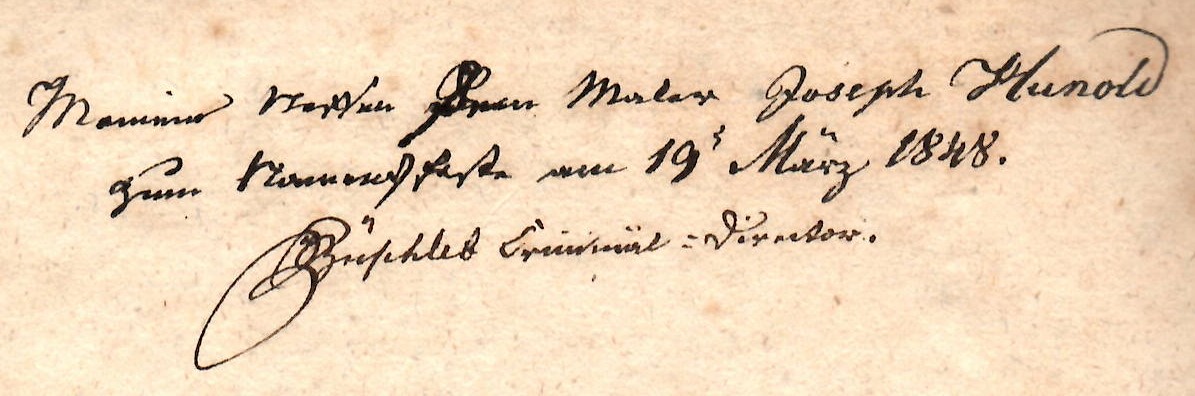 Meinem Neffen Herrn Maler Joseph Hunold
zum Namensfeste am 19t März 1848.
Criminal-Director.